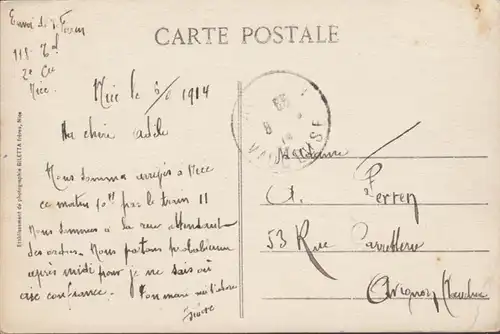 CARTE POSTALE
Envoi de
111
Nice
Nice le 8/8 1914
Ma chère Adèle
Nous sommes arrivés à Nice
ce matin par le train 11
Nous sommes à la rue attendant
des ordres. Nous partons probablement
après midi pour je ne sais où
aie confiance. Ton mari
Etablissement de photographie GILETTA Frères, Nice
VAUCLUSE
Madame
A. Ferren
53 Rue Carreterie
Avignon (Vaucluse